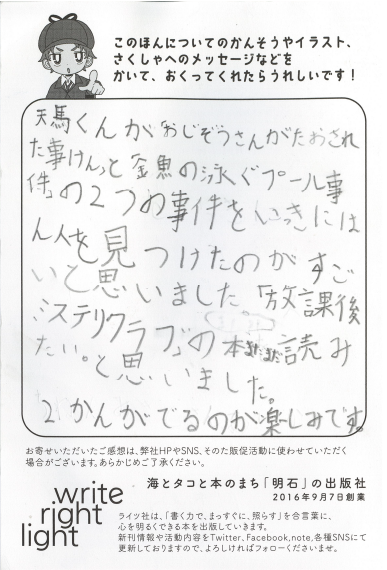 このほんについてのかんそうやイラスト、
さくしゃへのメッセージなどを
かいて、おくってくれたらうれしいです！
天馬くんが「おじぞうさんがたおされ
た事けん」と「金魚の泳ぐプール事
件」の2つの事件をいっきには
ん人を見つけたのがすご
いと思いました。「放課後
ミステリクラブ」の本まだまだ読み
たい。と思いました。
2かんがでるのが楽しみです。
お寄せいただいたご感想は、弊社HPやSNS、そのた販促活動に使わせていただく
場合がございます。あらかじめご了承ください。
海とタコと本のまち「明石」の出版社
2016年9月7日創業
write
right
light
ライツ社は、「書く力で、まっすぐに、照らす」を合言葉に、
心を明るくできる本を出版していきます。
新刊情報や活動内容をTwitter、Facebook、note、各種SNSにて
更新しておりますので、よろしければフォローくださいませ。